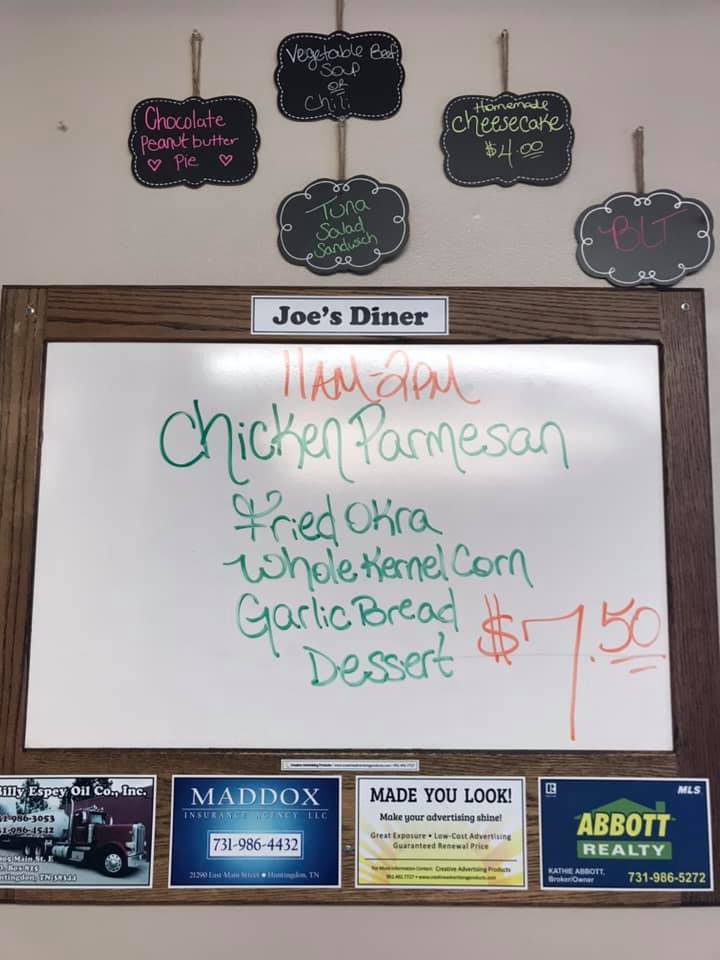 Vegetable Beef
Soup
OR
Chili
Chocolate
Peanut butter
Pie
Homemade
Cheesecake
$4.00
Tuna
Salad
Sandwich
BLT
Joe's Diner
11AM-2PM
Chicken Parmesan
Fried Okra
Whole Kernel Corn
Garlic Bread
Dessert
$7.50
Billy Espey Oil Co., Inc.
986-3053
986-4542
Main St. E
Box 825
Huntingdon, TN 38344
MADDOX
INSURANCE AGENCY LLC
731-986-4432
21290 East Main Street • Huntingdon, TN
MADE YOU LOOK!
Make your advertising shine!
Great Exposure • Low-Cost Advertising
Guaranteed Renewal Price
For More Information Contact: Creative Advertising Products
MLS
ABBOTT
REALTY
KATHIE ABBOTT,
Broker/Owner
731-986-5272